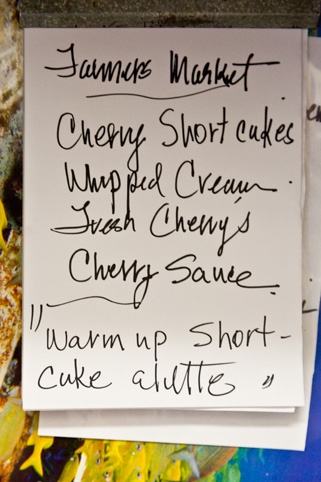 Farmers Market
Cherry Short cakes
Whipped Cream
Fresh Cherry's
Cherry Sauce
"Warm up Short-
cake alittle "